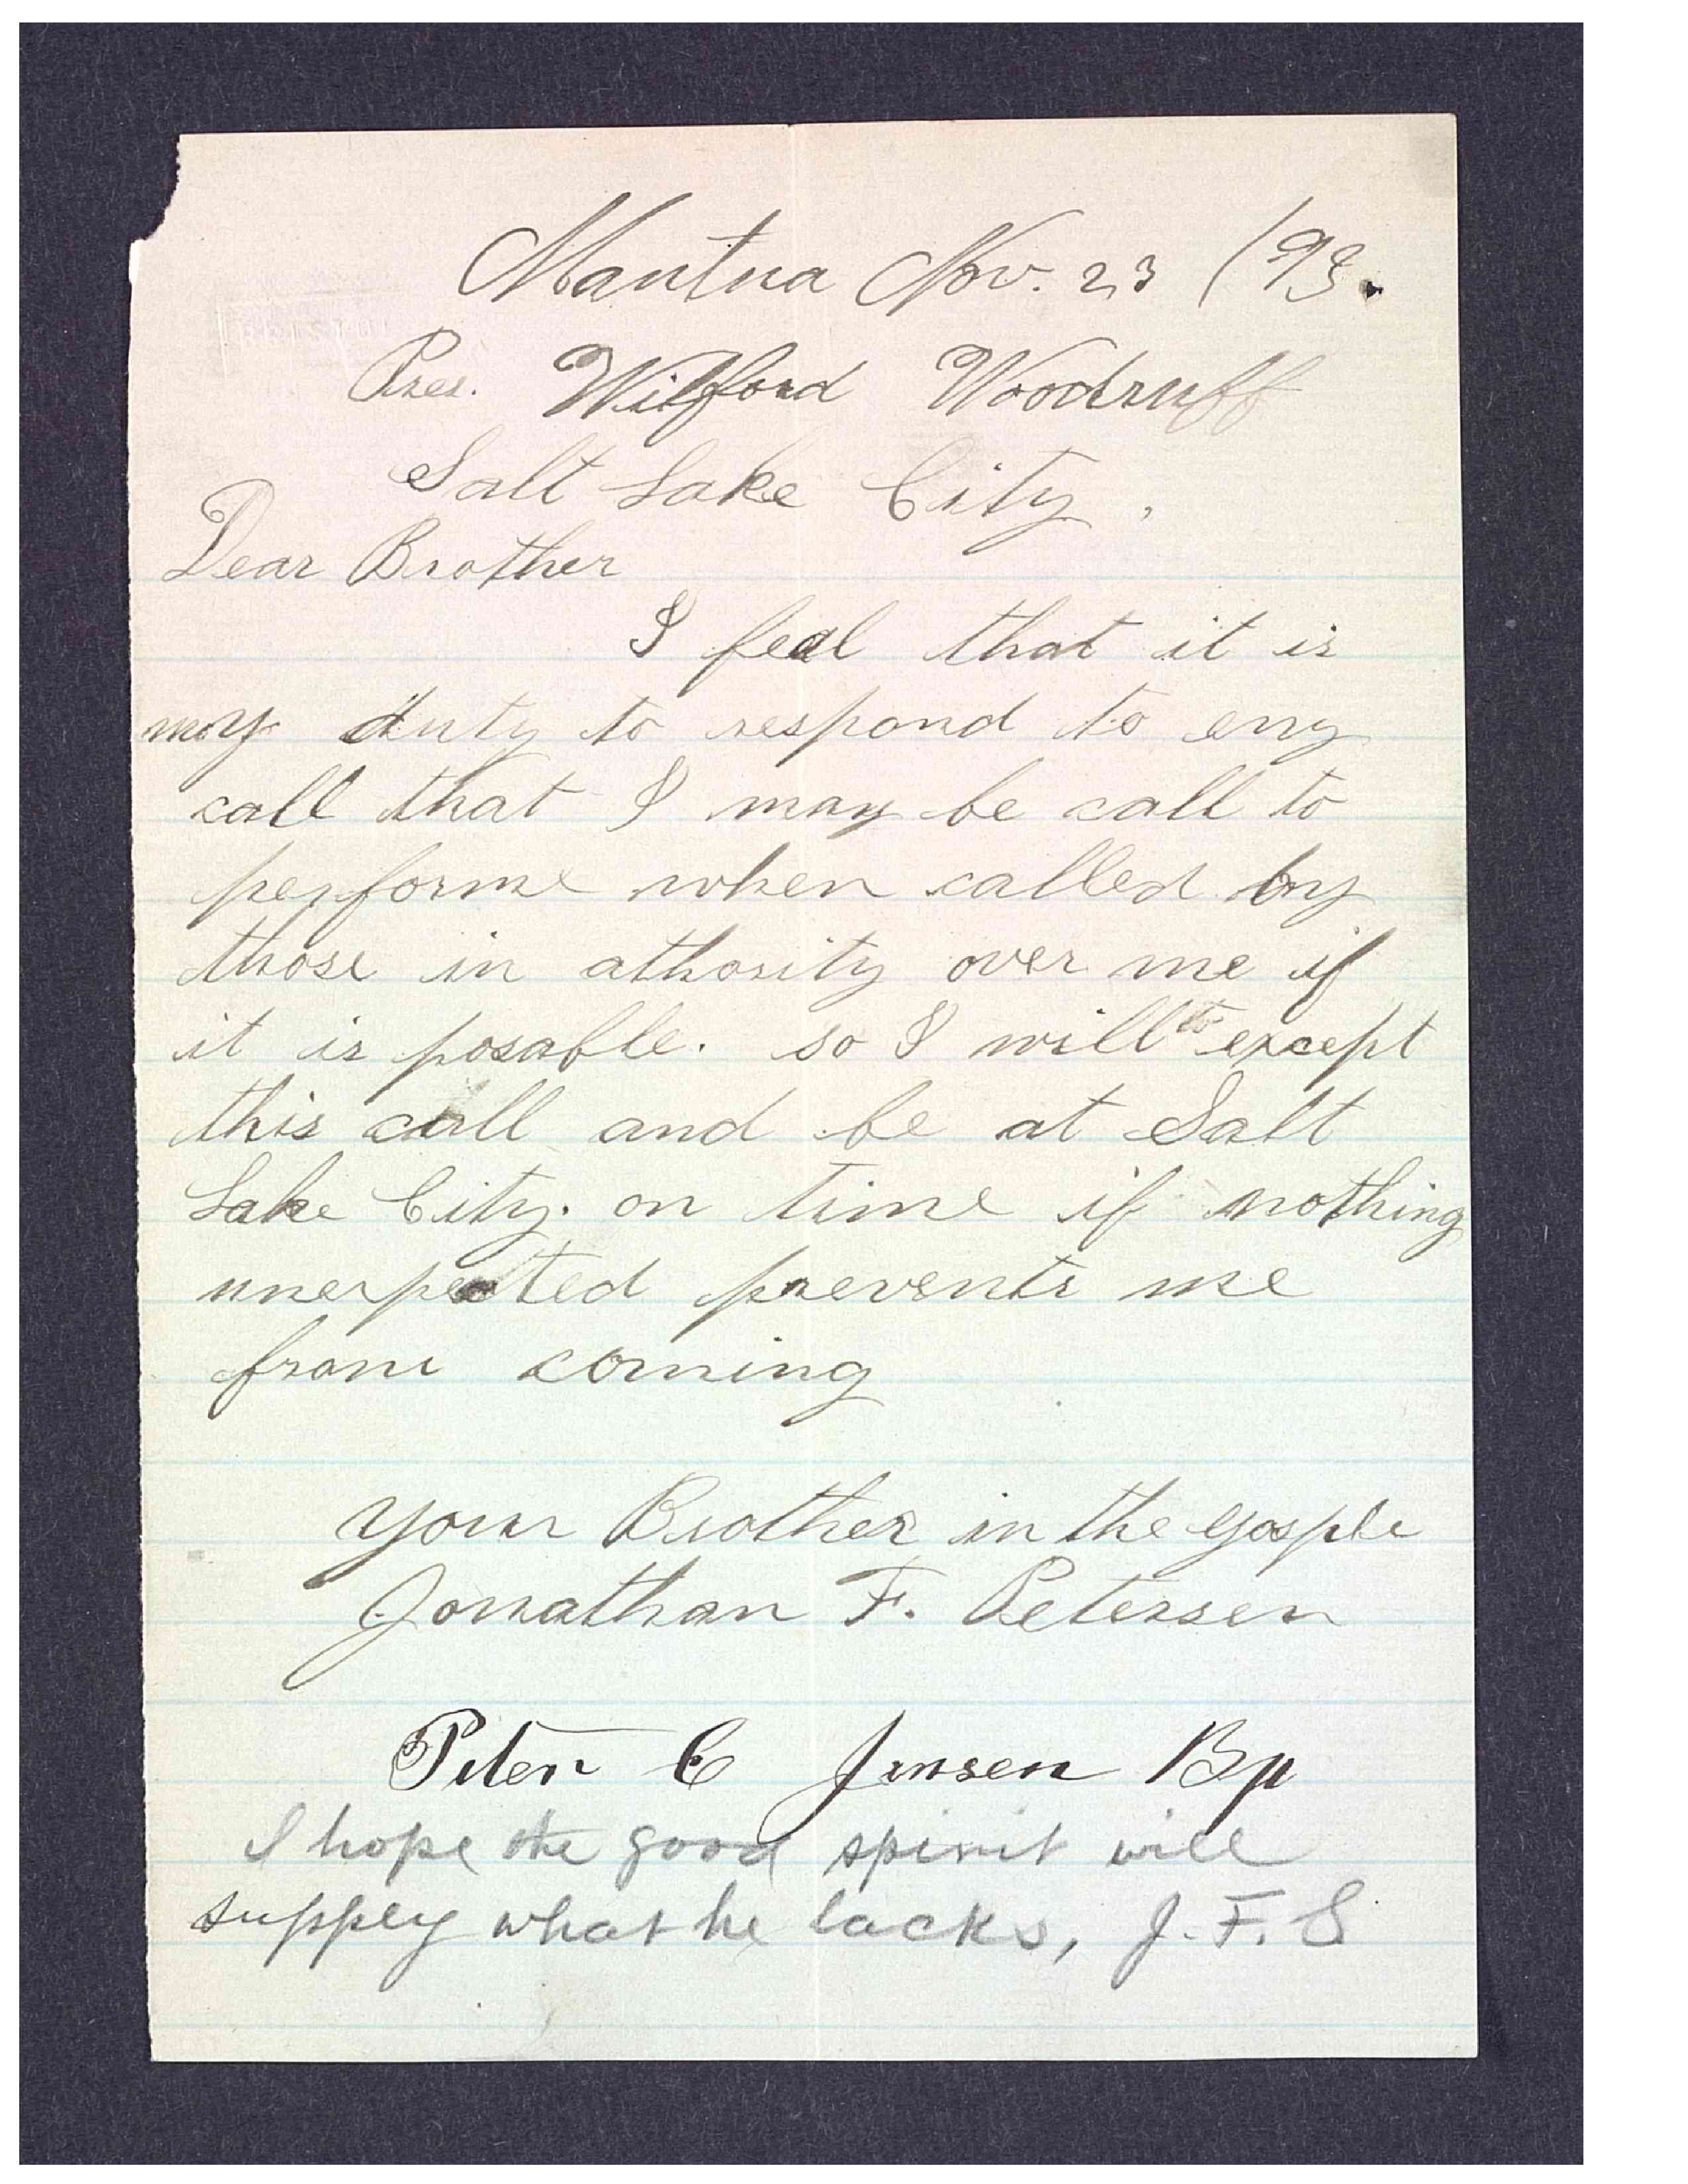 Mantua Nov. 23 /93.
Pres. Wilford Woodruff
Salt Lake City.
Dear Brother
I feal that it is
my duty to respond to eny
call that I may be call to
performe when called by
those in athority over me if
it is posable. so I will to except
this call and be at Salt
Lake City. on time if nothing
unexpected prevents me
from coming
Your Brother in the gosple
Jonathan F. Petersen
Peter C Jensen Bp
I hope the good spirit will
supply what he lacks, J. F. S